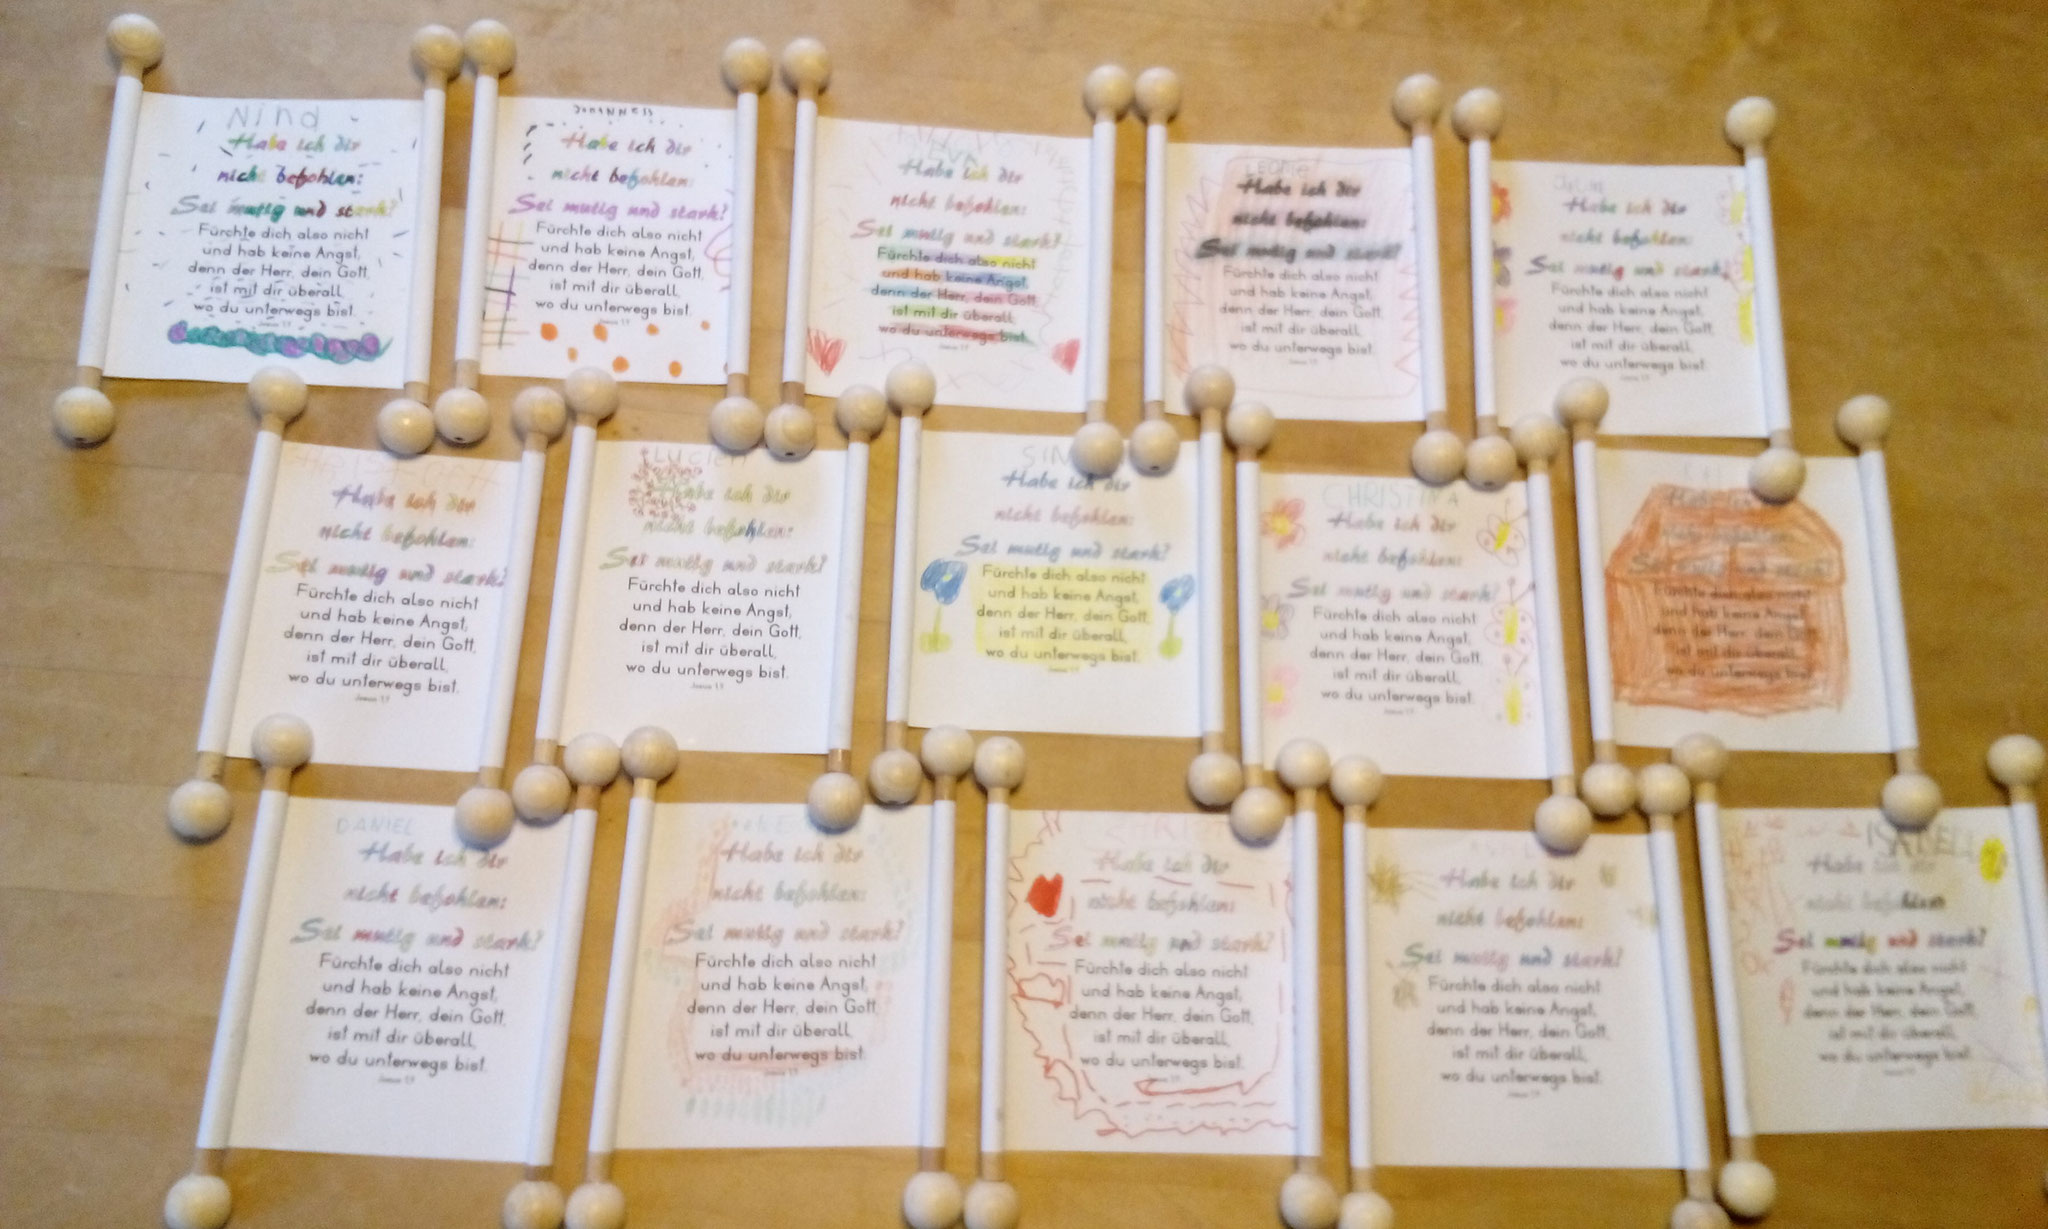 Nina
Habe ich dir
nicht befohlen:
Sei mutig und stark?
Fürchte dich also nicht
und hab keine Angst,
denn der Herr, dein Gott,
ist mit dir überall,
wo du unterwegs bist.
JOHANNES
Habe ich dir
nicht befohlen:
Sei mutig und stark?
Fürchte dich also nicht
und hab keine Angst,
denn der Herr, dein Gott,
ist mit dir überall,
wo du unterwegs bist.
Habe ich dir
nicht befohlen:
Sei mutig und stark?
Fürchte dich also nicht
und hab keine Angst,
denn der Herr, dein Gott,
ist mit dir überall,
wo du unterwegs bist.
LEONIE
Habe ich dir
nicht befohlen:
Sei mutig und stark?
Fürchte dich also nicht
und hab keine Angst,
denn der Herr, dein Gott,
ist mit dir überall,
wo du unterwegs bist.
Habe ich dir
nicht befohlen:
Sei mutig und stark?
Fürchte dich also nicht
und hab keine Angst,
denn der Herr, dein Gott,
ist mit dir überall,
wo du unterwegs bist.
Habe ich dir
nicht befohlen:
Sei mutig und stark?
Fürchte dich also nicht
und hab keine Angst,
denn der Herr, dein Gott,
ist mit dir überall,
wo du unterwegs bist.
LUCIEN
Habe ich dir
nicht befohlen:
Sei mutig und stark?
Fürchte dich also nicht
und hab keine Angst,
denn der Herr, dein Gott,
ist mit dir überall,
wo du unterwegs bist.
Habe ich dir
nicht befohlen:
Sei mutig und stark?
Fürchte dich also nicht
und hab keine Angst,
denn der Herr, dein Gott,
ist mit dir überall,
wo du unterwegs bist.
CHRISTINA
Habe ich dir
nicht befohlen:
Sei mutig und stark?
Fürchte dich also nicht
und hab keine Angst,
denn der Herr, dein Gott,
ist mit dir überall,
wo du unterwegs bist.
Habe ich dir
nicht befohlen:
Sei mutig und stark?
Fürchte dich also nicht
und hab keine Angst,
denn der Herr, dein Gott,
ist mit dir überall,
wo du unterwegs bist.
DANIEL
Habe ich dir
nicht befohlen:
Sei mutig und stark?
Fürchte dich also nicht
und hab keine Angst,
denn der Herr, dein Gott,
ist mit dir überall,
wo du unterwegs bist.
Habe ich dir
nicht befohlen:
Sei mutig und stark?
Fürchte dich also nicht
und hab keine Angst,
denn der Herr, dein Gott,
ist mit dir überall,
wo du unterwegs bist.
Habe ich dir
nicht befohlen:
Sei mutig und stark?
Fürchte dich also nicht
und hab keine Angst,
denn der Herr, dein Gott,
ist mit dir überall,
wo du unterwegs bist.
Habe ich dir
nicht befohlen:
Sei mutig und stark?
Fürchte dich also nicht
und hab keine Angst,
denn der Herr, dein Gott,
ist mit dir überall,
wo du unterwegs bist.
ISABELL
Habe ich dir
nicht befohlen
Sei mutig und stark?
Fürchte dich also nicht
und hab keine Angst,
denn der Herr, dein Gott,
ist mit dir überall,
wo du unterwegs bist.